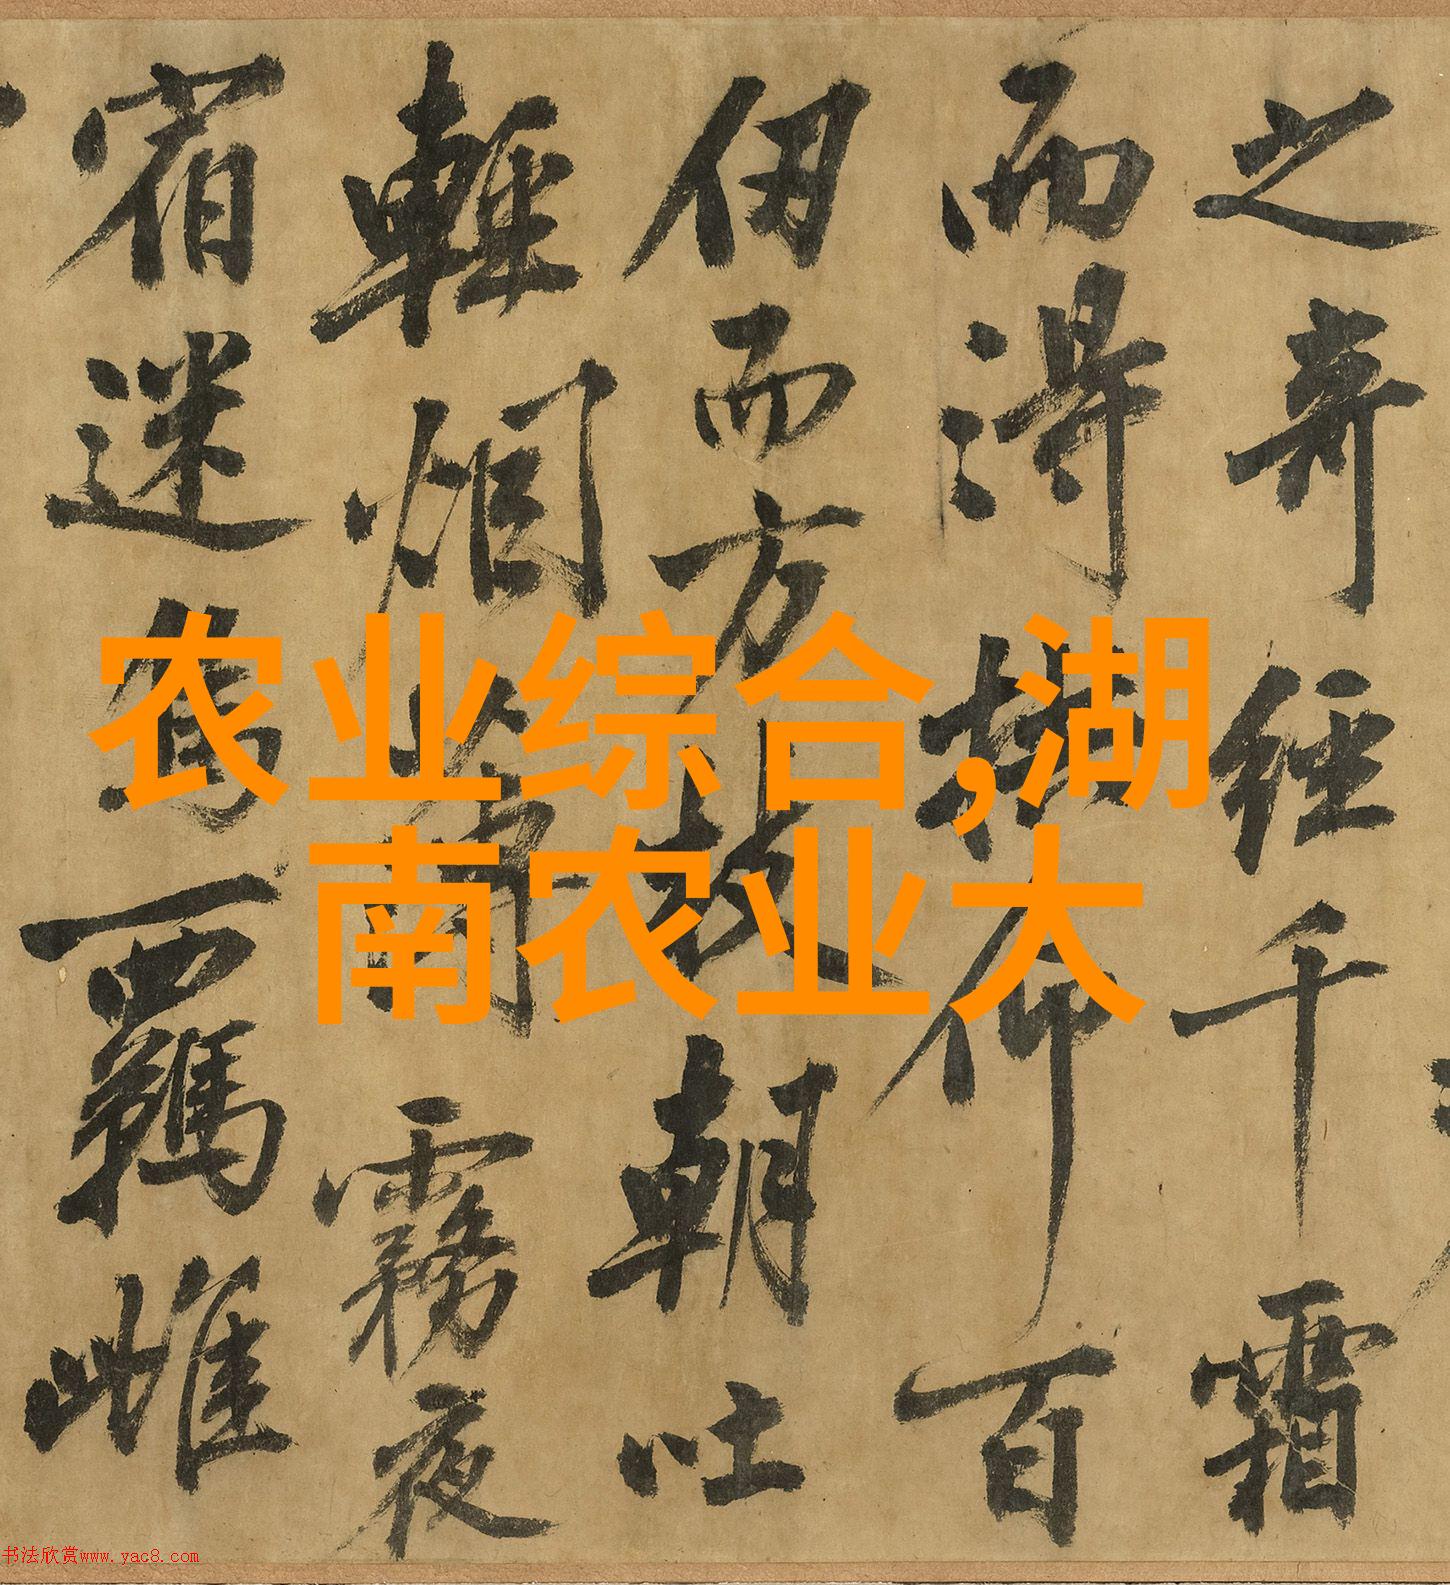 之奇經千霜
而得拱仰百
仞而方枝朝吐
輕烟薄霧夜
宿迷鳥羈雌
农业综合,湖
南农业大
书法欣赏www.yac8.com